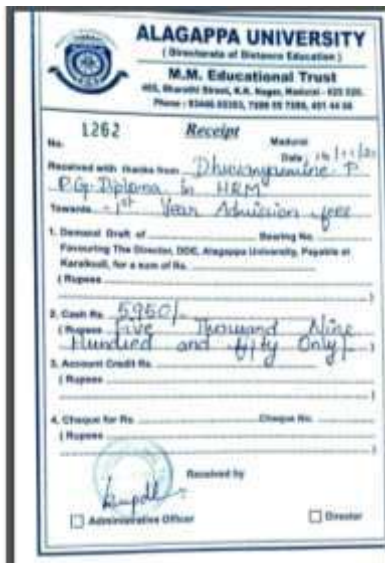 ALAGAPPA UNIVERSITY
( Directorate of Distance Education )
M.M. Educational Trust
Bharathi Street, K.K. Nagar, Madurai - 625 020.
No. 1262 Receipt Madurai
Date
Received with thanks from P
P.G. Diploma in HRM
Towards - 1st Year Admission fee
1. Demand Draft of Bearing No.
Favouring The Director, DDE, Alagappa University, Payable at
Karaikudi, for a sum of Rs.
( Rupees
)
2. Cash Rs 5950/-
( Rupees Five Thousand Nine
Hundred and fifty Only/- )
3. Account Credit Rs.
( Rupees
)
4. Cheque for Rs Cheque No.
( Rupees
)
Received by
Administrative Officer Director